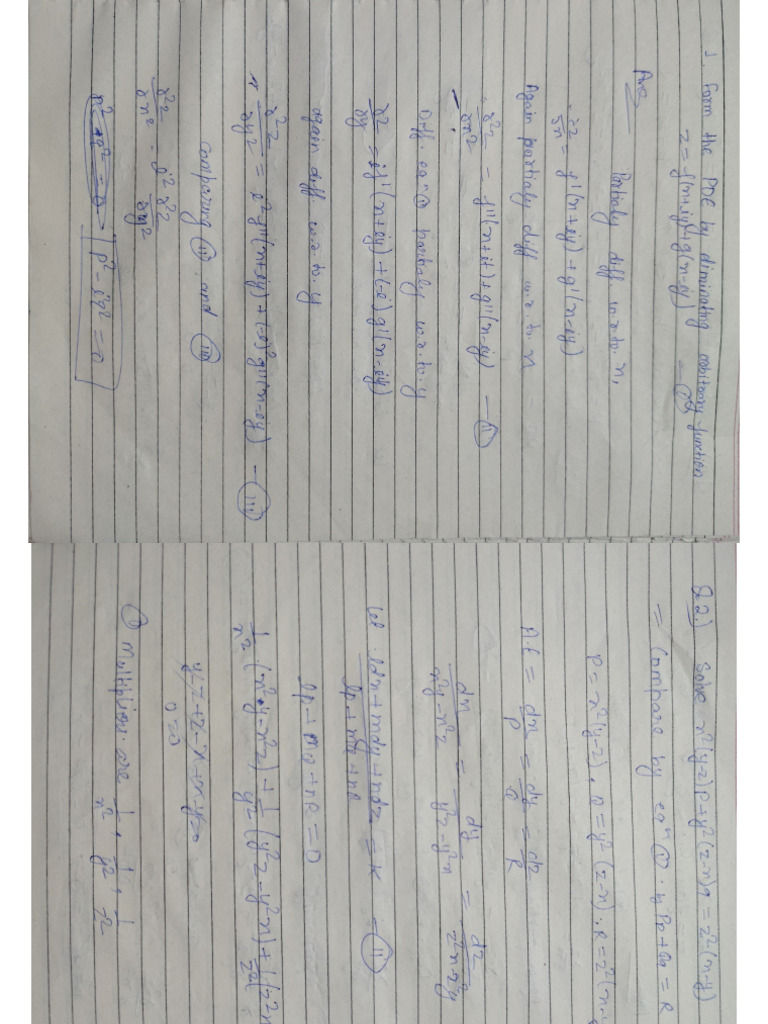 1. Form the PDE by eliminating arbitrary function
z = f(x+iy)+g(x-iy) — ①
Ans
Partialy diff w.r.to. x,
∂z/∂x = f'(x+iy)+g'(x-iy)
Again partialy diff w.r.to. x
∂²z/∂x² = f''(x+iy)+g''(x-iy) — ⅱ
Diff. eqⁿ ① partialy w.r.to. y
∂z/∂y = if'(x+iy)+(-i)g'(x-iy)
again diff w.r.to. y
∂²z/∂y² = i²f''(x+iy)+(-i)²g''(x-iy) — ⅲ
comparing ⅱ and ⅲ
∂²z/∂x² - i² ∂²z/∂y²
p²-i²q² = 0
Q.2.) Solve x²(y-z)p+y²(z-x)q = z²(x-y)
= Compare by eqⁿ ① . by Pp+Qq = R
P = x²(y-z), Q = y²(z-x). R = z²(x-y
A.E = dx/P = dy/Q = dz/R
dx/x²y-x²z = dy/y²z-y²x = dz/z²x-z²y
let ldx+mdy+ndz = k — ⅱ
lp+mq+nR
lp+mQ+nR = 0
1/x²(x²y-x²z)+1/y²(y²z-y²x)+1/z²(z²x
y-z+z-x+x-y=0
0=0
① Multipliers are 1/x², 1/y², 1/z²